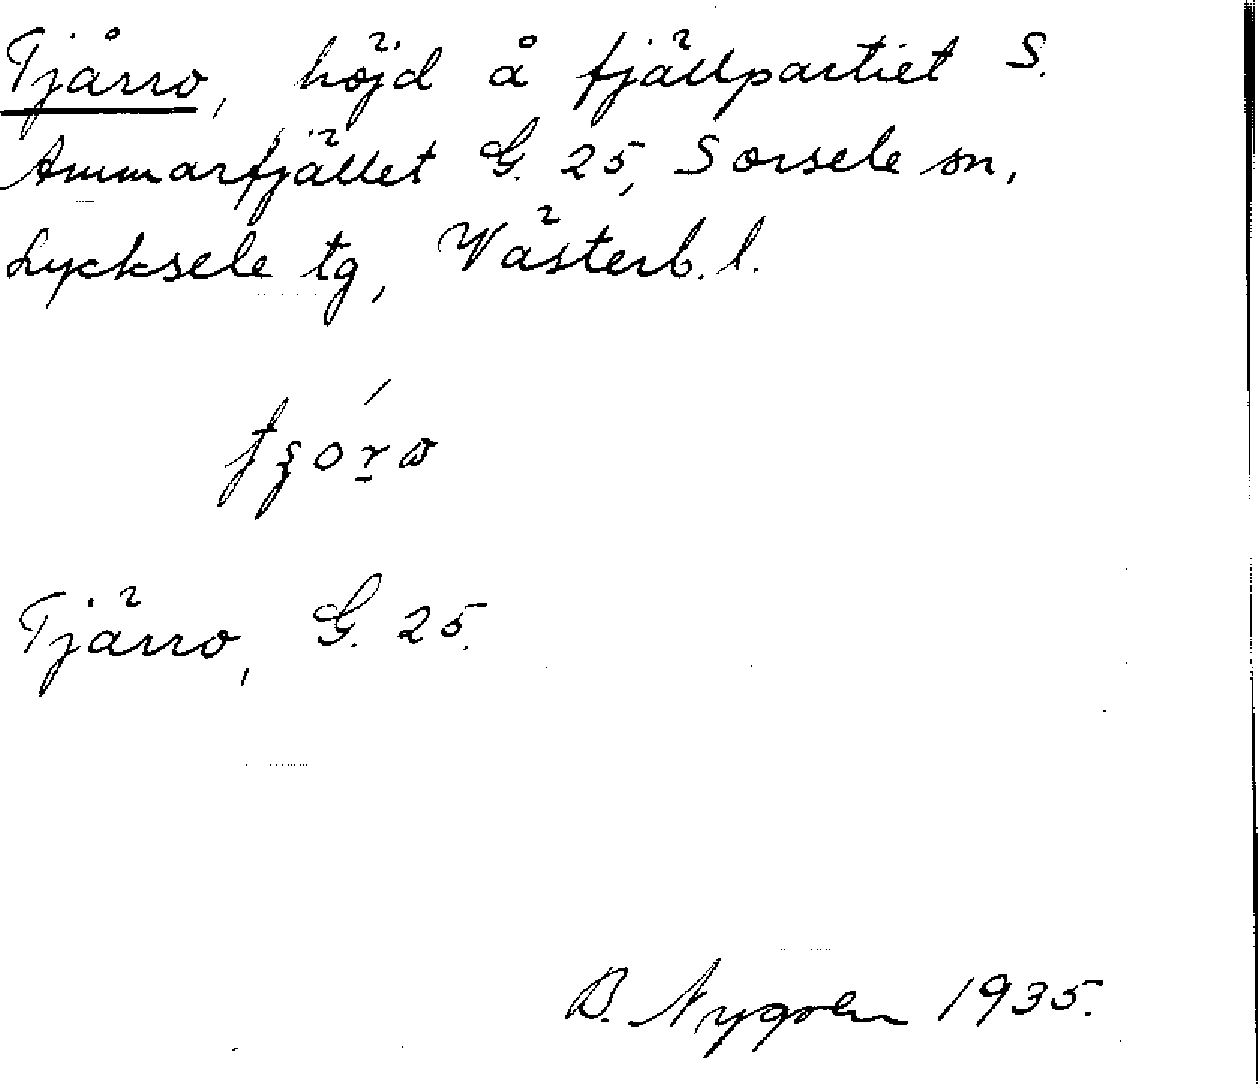 Tjårro, höjd å fjällpartiet S.
Ammarfjället G. 25, Sorsele sn,
Lycksele tg, Västerb. l.
Tjärro, G. 25.
B. Nygren 1935.